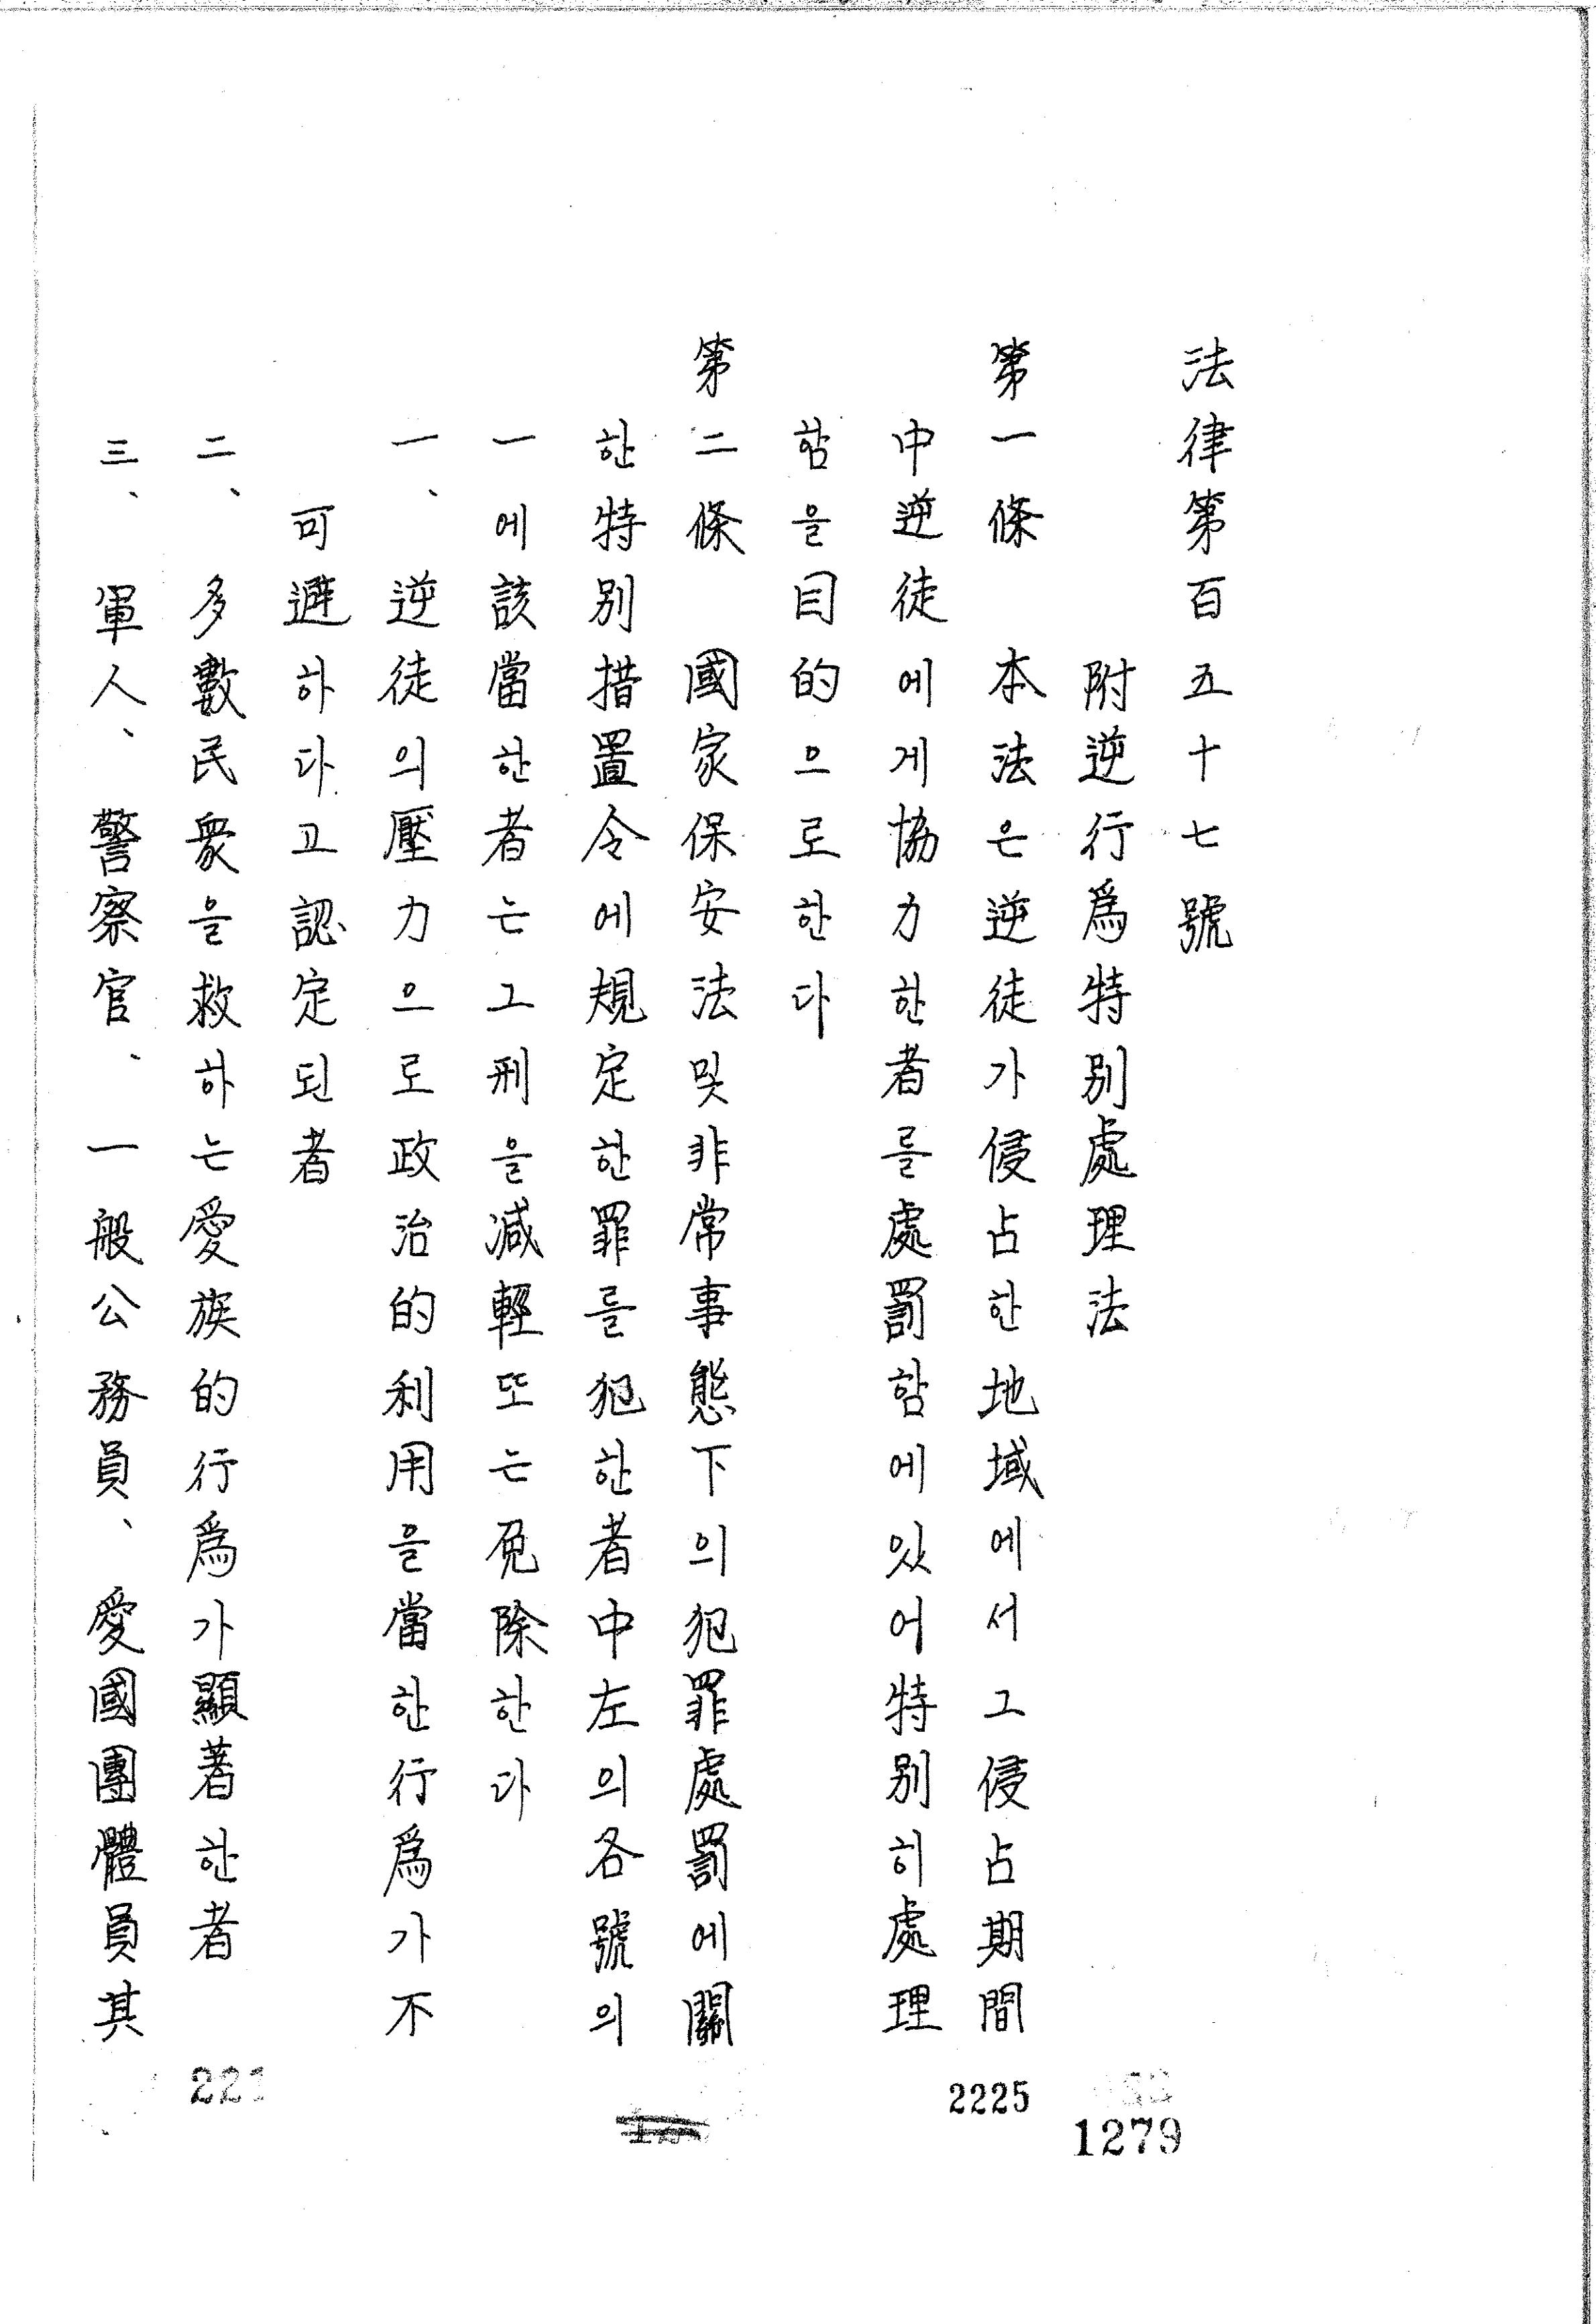 法律第百五十七號
附逆行爲特別處理法
第一條 本法은逆徒가侵占한地域에서그侵占期間
中逆徒에게協力한者를處罰함에있어特別히處理
함을目的으로한다
第二條 國家保安法및非常事態下의犯罪處罰에關
한特別措置令에規定한罪를犯한者中左의各號의
一에該當한者는그刑을減輕또는免除한다
一、逆徒의壓力으로政治的利用을當한行爲가不
可避하다고認定된者
二、多數民衆을救하는愛族的行爲가顯著한者
三、軍人、警察官、一般公務員、愛國團體員其
221
2225
1279